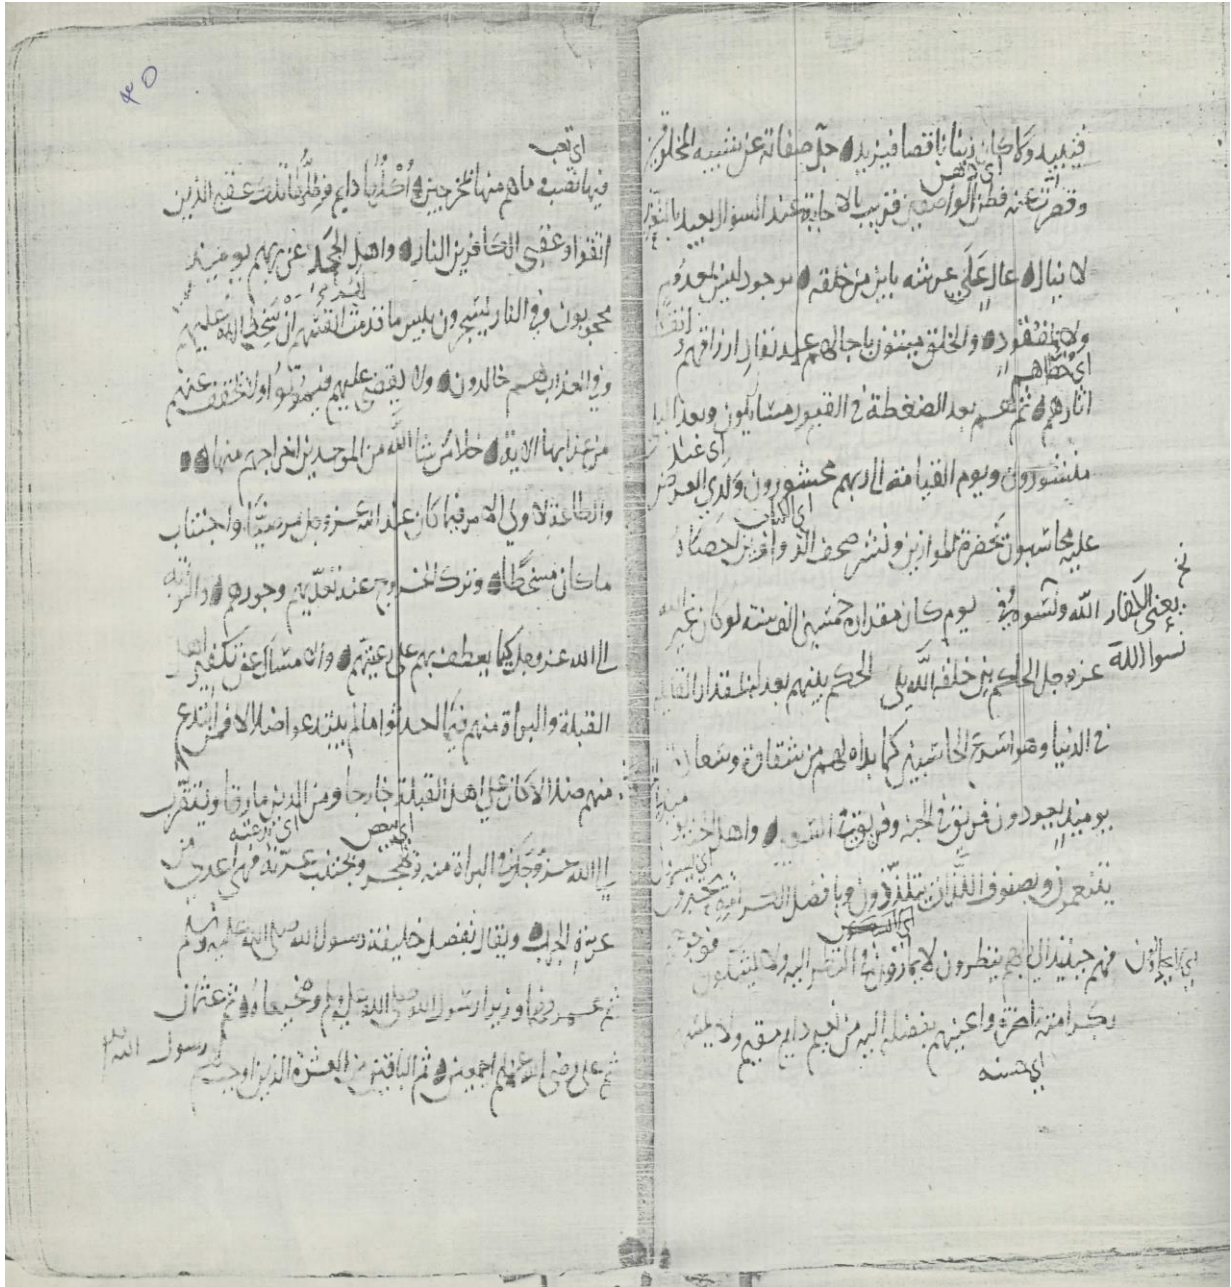 فيبيد ولا كان ربنا ناقصا فيزيد جل صفاته عن شبيه المخلوقين
اي ذهن
وقصرت عنه فطن الواصفين قريب بالاجابة عند السؤال بعيد بالتعزز
لا ينال عال على عرشه باين من خلقه موجود ليس بمعدوم
ولا بمفقود والخلق ميتون باجالهم عند نفاد ارزاقهم
اي خطاهم
اثارهم ثم هم بعد الضغطة في القبور مسايلون وبعد
منشورون ويوم القيامة الى ربهم محشورون ولدي العرض
اي عند
اي الكتاب
عليه محاسبون بحضرة الموازين ونشر صحف الدواوين احصاه
الله ونسوه في يوم كان مقداره خمسين الف سنة لو كان غير الله
يعني الكفار
نسوا الله
عز وجل الحاكم بين خلقه الله يلي الحكم بينهم بعدله بمقدار القايلة
في الدنيا وهو اسرع الحاسبين كما بداه لهم من شقاوة وسعادة
يوميذ يعودون فريق في الجنة وفريق في السعير واهل الجنة
يتنعمون وبصنوف اللذات يتلذذون وبافضل الكرامة يحبرون
فهم حينئذ الى ربهم ينظرون لا يمارون في النظر اليه ولا يشكون
بكرامته ناضرة واعينهم بفضله اليه من نعيم دايم مقيم ولا يمسهم
اي تعب
فيها نصب وما هم منها بمخرجين اكلها دايم وظلها تلك عقبى الذين
اتقوا وعقبى الكافرين النار واهل الجحد عن ربهم يوميذ
محجوبون وفي النار يسجرون لبيس ما قدمت لهم انفسهم ان سخط الله عليهم
وفي العذاب هم خالدون ولا يقضى عليهم فيموتوا ولا يخفف عنهم
من عذابها الاية خلا من شا الله من الموحدين اخراجهم منها
والطاعة لاولي الامر فيما كان عند الله عز وجل مرضيا واجتناب
ما كان مسخطا وترك الخروج عند تعديهم وجورهم والتوبة
الى الله عز وجل كيما يعطف بهم على رعيتهم والامساك عن تكفير اهل
القبلة والبراة منهم فيما احدثوا ما لم يبتدعوا ضلالا فمن ابتدع
منهم ضلالا كان على اهل القبلة خارجا ومن الدين مارقا ويتقرب
الى الله عز وجل بالبراة منه ويهجر ويجتنب عرته فهي اعدى من
عرة الجرب ويقال بفضل خليفة رسول الله صلى الله عليه وسلم
ثم عمر وهما وزيرا رسول الله صلى الله عليه وسلم وضجيعاه ثم عثمان
ثم علي رضي الله عنهم اجمعين ثم الباقين من العشرة الذين اوجب لهم
رسول الله